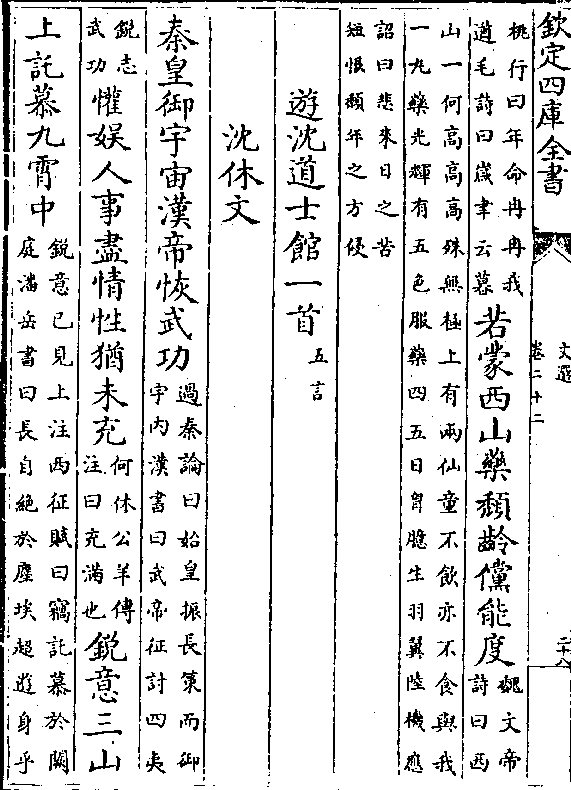 欽定四庫全書
文選
卷二十二
二十八
桃行曰年命冉冉我
遒毛詩曰歲聿云暮
若蒙西山藥頹齡儻能度
魏文帝
詩曰西
山一何高高高殊無極上有兩仙童不飲亦不食與我
一丸藥光輝有五色服藥四五日胷臆生羽翼陸機應
詔曰悲來日之苦
短悵頹年之方侵
遊沈道士館一首
五言
沈休文
秦皇御宇宙漢帝恢武功
過秦論曰始皇振長策而御
宇內漢書曰武帝征討四夷
銳志
武功
懽娱人事盡情性猶未充
何休公羊傳
注曰充滿也
銳意三山
上託慕九霄中
銳意已見上注西征賦曰竊託慕於闕
庭潘岳書曰長自絕於塵埃超遊身乎